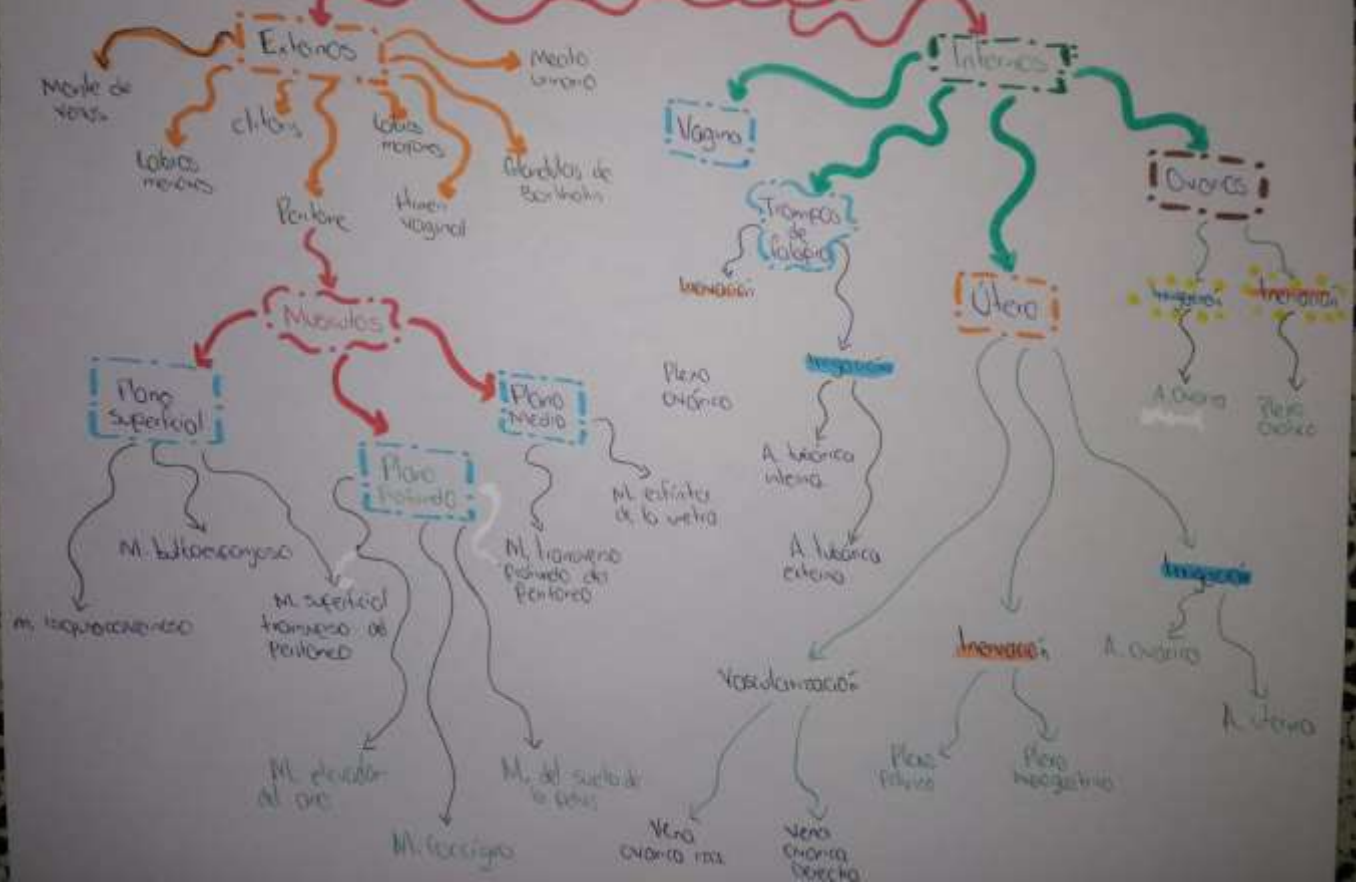 Externos
Internos
Monte de
venus
Labios
menores
clitoris
Labios
mayores
Meato
urinario
Glandulas de
Bartholin
Himen
vaginal
Músculos
Plano
superficial
Plano
Profundo
Plano
Medio
M. bulboesponjoso
M. superficial
transverso del
perineo
M. elevador
del ano
M. Coccigeo
M. del suelo de
la pelvis
M. transverso
profundo del
M. esfinter
de la uretra
Vagina
Trompas
de
falopio
Inervación
Plexo
ovárico
Irrigación
A. tubárica
interna
A. tubárica
externa
Útero
Vascularización
Vena
ovarica izq.
Vena
ovarica
Derecha
Inervación
Plexo
Plexo
hipogastrico
Irrigación
A. ovarica
A. uterina
Ovarios
Irrigación
A. Ovarica
Inervación
Plexo